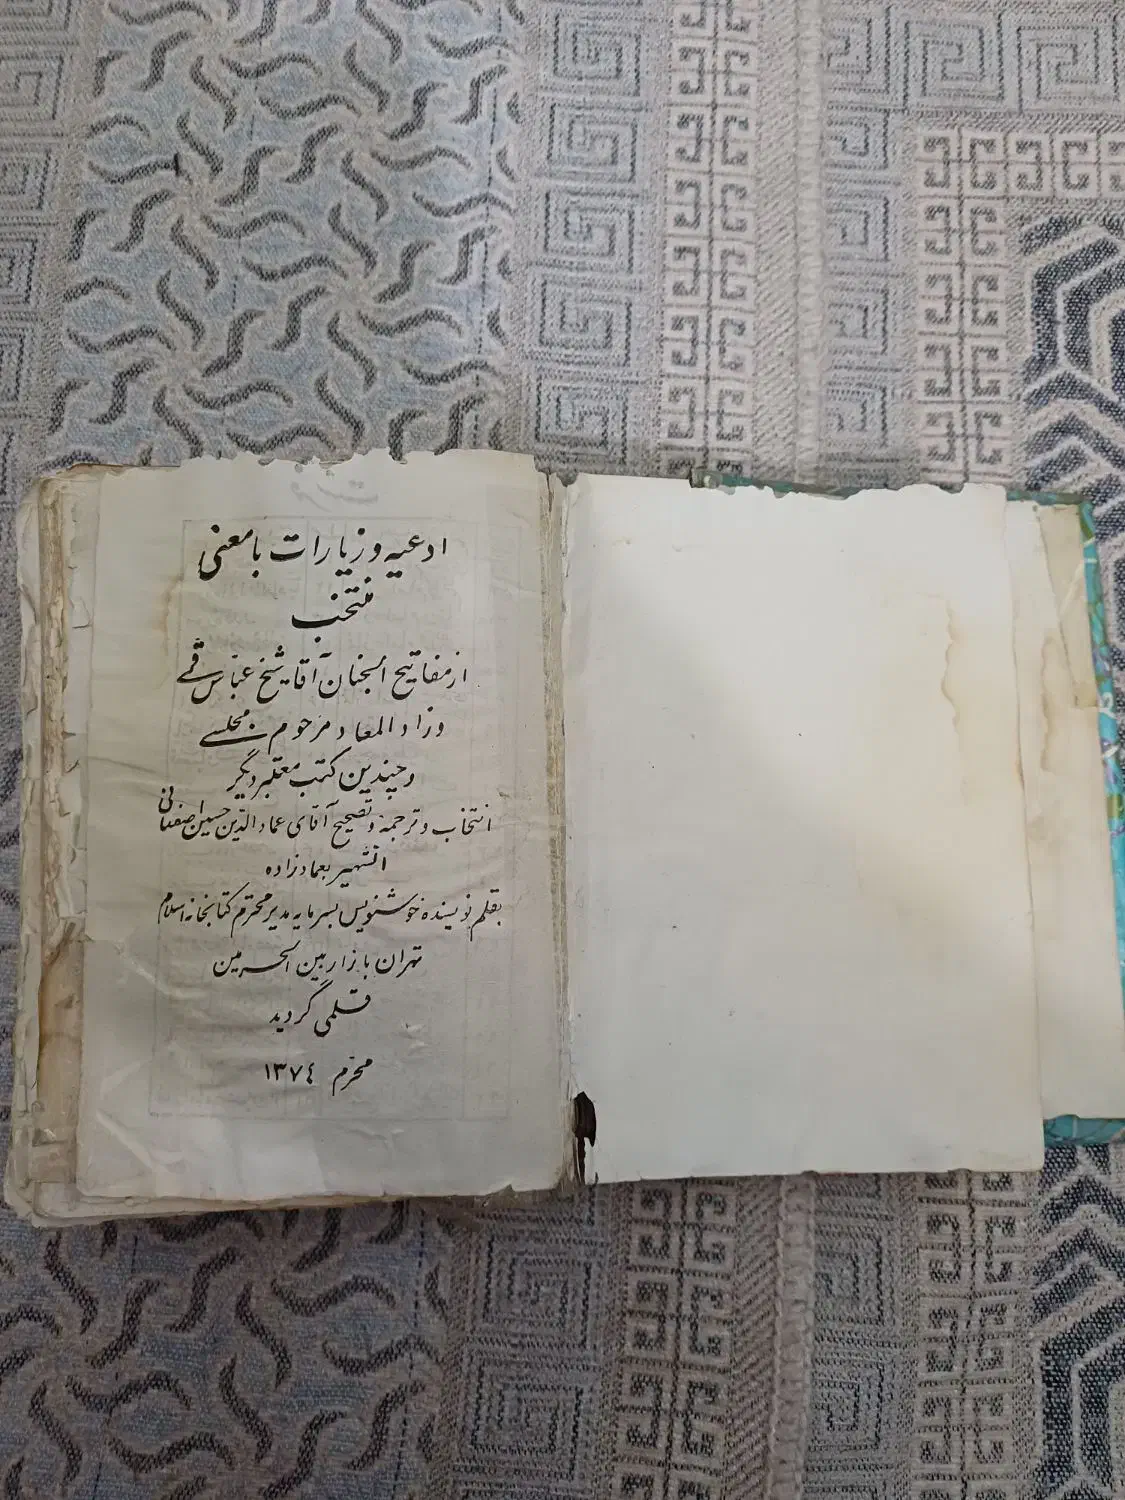 ادعیه و زیارات با معنی
منتخب
از مفاتیح الجنان آقا شیخ عباس قمی
و زاد المعاد مرحوم مجلسی
و چندین کتب معتبر دیگر
انتخاب و ترجمة و تصحیح آقای عماد الدین حسین اصفهانی
الشهیر بعمادزاده
بقلم نویسنده خوشنویس بسرمایه مدیر محترم کتابخانه اسلام
تهران بازار بین الحرمین
قلمی گردید
محرم ١٣٧٤